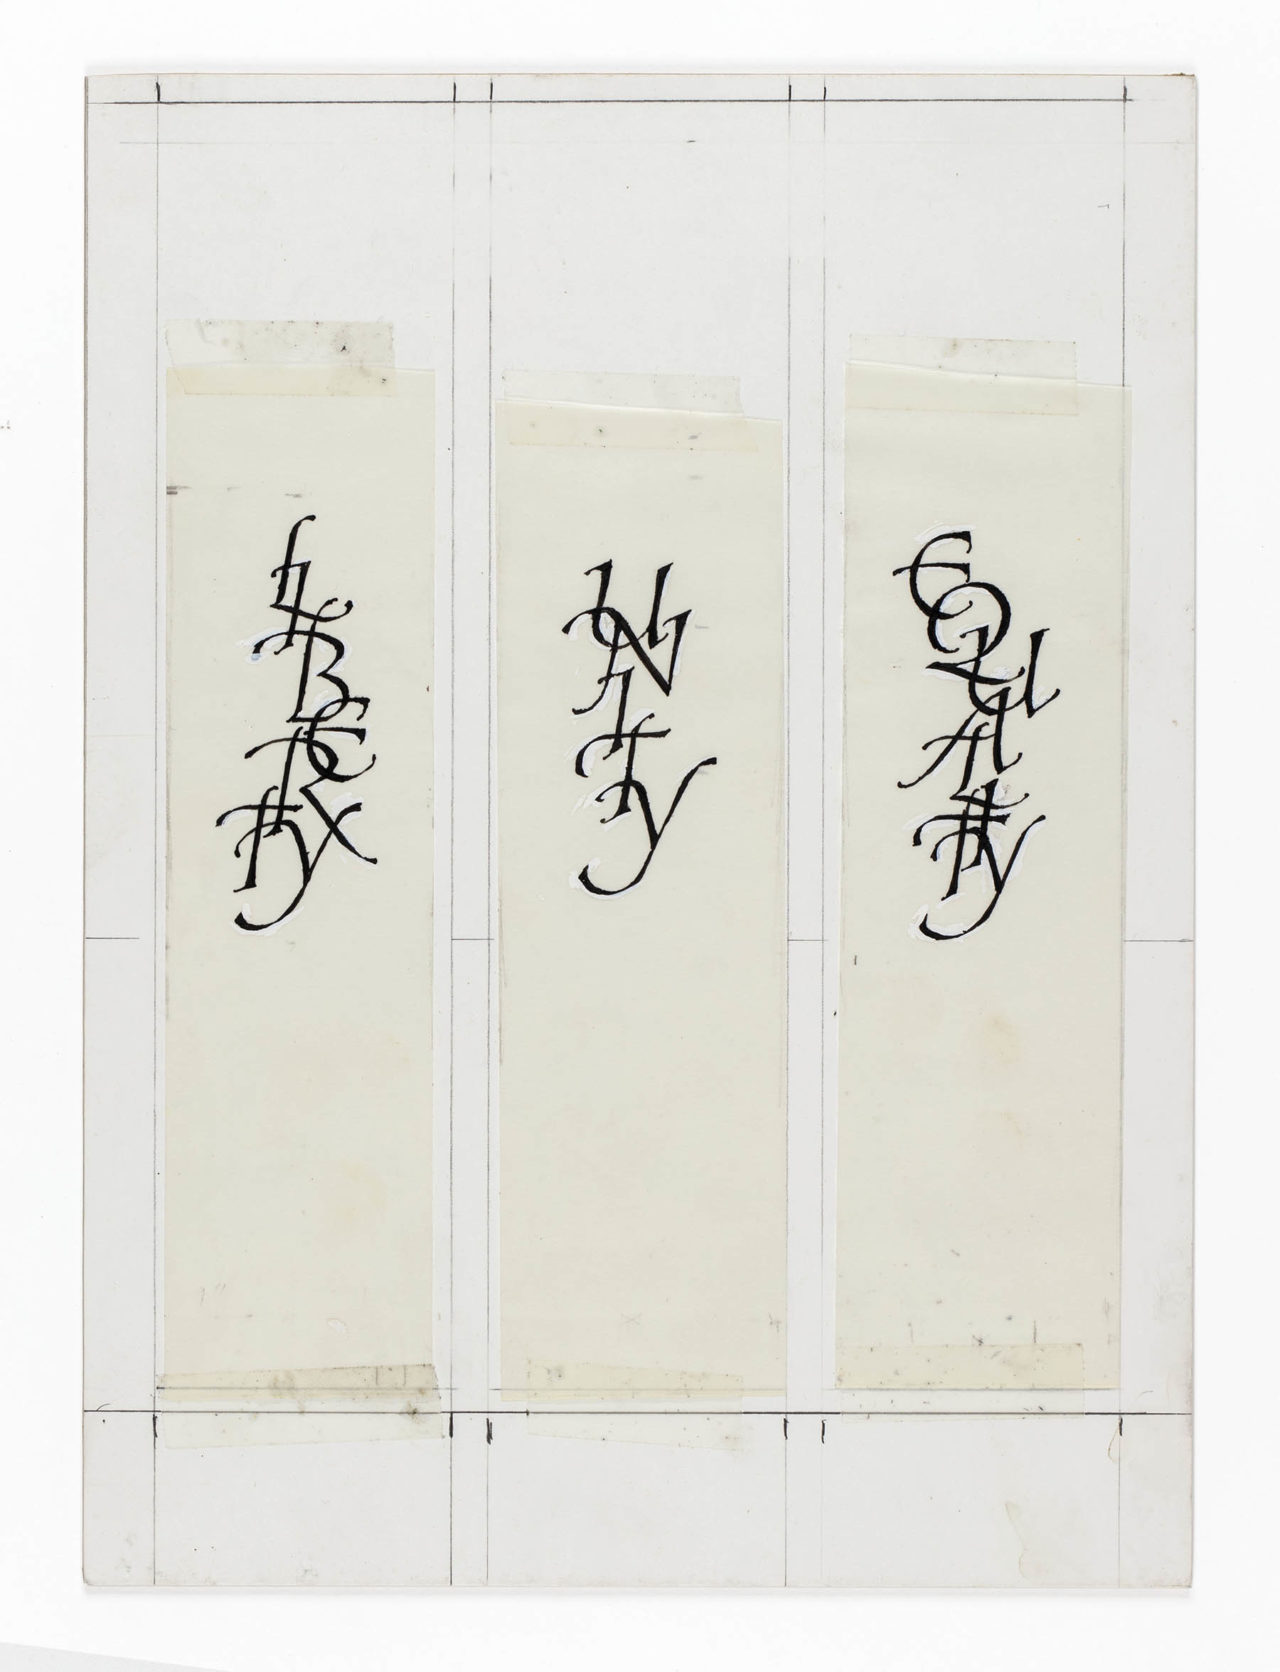 LIBERTY
UNITY
EQUALITY